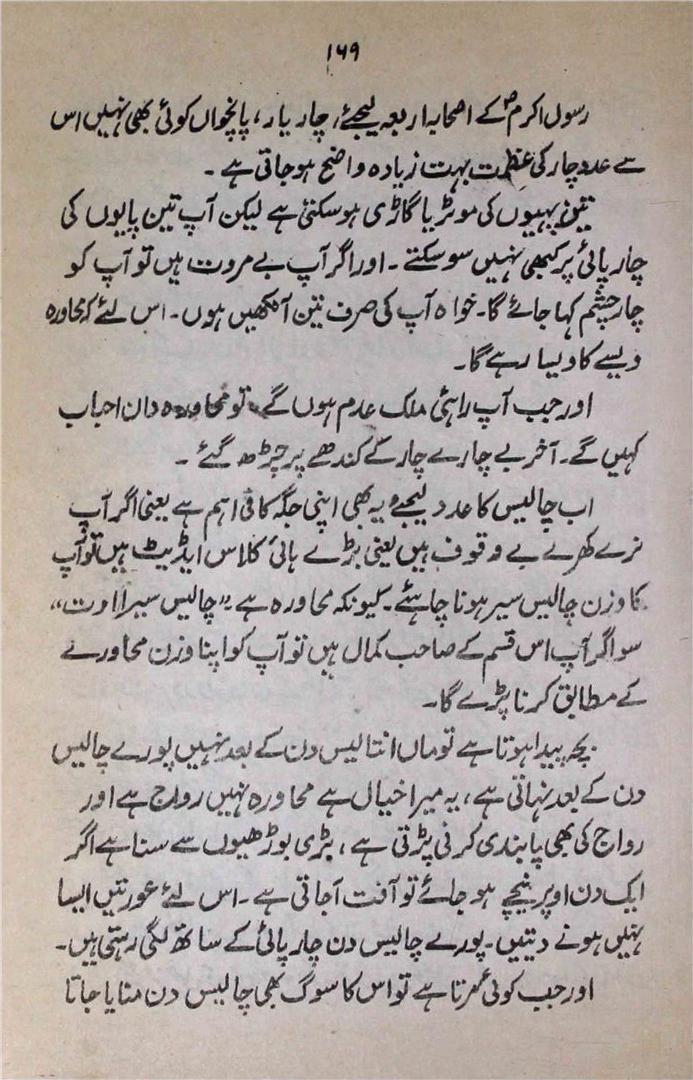 ۱۶۹
رسول اکرمؐ کے اصحابہ اربعہ لیجئے، چار یار، پانچواں کوئی بھی نہیں اس
سے عدد چار کی عظمت بہت زیادہ واضح ہو جاتی ہے ۔
تین پہیوں کی موٹر یا گاڑی ہو سکتی ہے لیکن آپ تین پایوں کی
چارپائی پر کبھی نہیں سو سکتے ۔ اور اگر آپ بے مروت ہیں تو آپ کو
چار چشم کہا جائے گا۔ خواہ آپ کی صرف تین آنکھیں ہوں۔ اس لئے کہ محاورہ
ویسے کا ویسا رہے گا۔
اور جب آپ راہئی ملک عدم ہوں گے، تو محاورہ دان احباب
کہیں گے۔ آخر بے چارے چار کے کندھے پر چڑھ گئے ۔
اب چالیس کا عدد لیجئے یہ بھی اپنی جگہ کافی اہم ہے یعنی اگر آپ
نرے کھرے بے وقوف ہیں یعنی بڑے ہائی کلاس ایڈیٹ ہیں تو آپ
کا وزن چالیس سیر ہونا چاہئے ۔ کیونکہ محاورہ ہے "چالیس سیرا اوت"
سو اگر آپ اس قسم کے صاحب کمال ہیں تو آپ کو اپنا وزن محاورے
کے مطابق کرنا پڑے گا۔
بچہ پیدا ہوتا ہے تو ماں انتالیس دن کے بعد نہیں پورے چالیس
دن کے بعد نہاتی ہے، یہ میرا خیال ہے محاورہ نہیں رواج ہے اور
رواج کی بھی پابندی کرنی پڑتی ہے، بڑی بوڑھیوں سے سنا ہے اگر
ایک دن اوپر نیچے ہو جائے تو آفت آجاتی ہے ۔ اس لئے عورتیں ایسا
نہیں ہونے دیتیں۔ پورے چالیس دن چارپائی کے ساتھ لگی رہتی ہیں۔
اور جب کوئی مرتا ہے تو اس کا سوگ بھی چالیس دن منایا جاتا